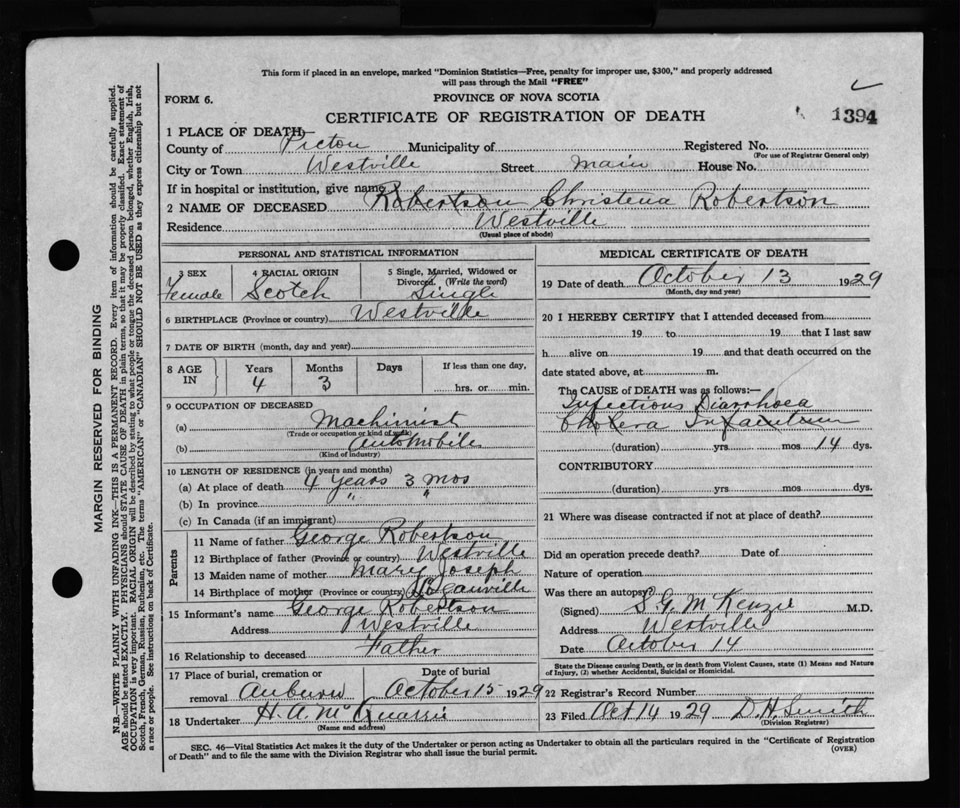 This form if placed in an envelope, marked "Dominion Statistics—Free, penalty for improper use, $300," and properly addressed
will pass through the Mail "FREE"
FORM 6.
PROVINCE OF NOVA SCOTIA
CERTIFICATE OF REGISTRATION OF DEATH
1394
1 PLACE OF DEATH—
County of Pictou Municipality of Registered No.
(For use of Registrar General only)
City or Town Westville Street Main House No.
If in hospital or institution, give name
2 NAME OF DECEASED Robertson Christena Robertson
Residence Westville
(Usual place of abode)
PERSONAL AND STATISTICAL INFORMATION
3 SEX 4 RACIAL ORIGIN 5 Single, Married, Widowed or
Divorced. (Write the word)
Female Scotch Single
6 BIRTHPLACE (Province or country) Westville
7 DATE OF BIRTH (month, day and year)
8 AGE IN Years Months Days If less than one day,
4 3 hrs. or min.
9 OCCUPATION OF DECEASED
(a) Machinist
(Trade or occupation or kind of work)
(b) Automobile
(Kind of industry)
10 LENGTH OF RESIDENCE (in years and months)
(a) At place of death 4 years 3 mos
(b) In province " "
(c) In Canada (if an immigrant)
Parents
11 Name of father George Robertson
12 Birthplace of father (Province or country) Westville
13 Maiden name of mother Mary Joseph
14 Birthplace of mother (Province or country)
15 Informant's name George Robertson
Address Westville
16 Relationship to deceased Father
17 Place of burial, cremation or Date of burial
removal October 15 1929
18 Undertaker H. A. McQuarrie
(Name and address)
MEDICAL CERTIFICATE OF DEATH
19 Date of death October 13 1929
(Month, day and year)
20 I HEREBY CERTIFY that I attended deceased from
19 to 19 that I last saw
h alive on 19 and that death occurred on the
date stated above, at m.
The CAUSE of DEATH was as follows:—
Infectious Diarrhoea
Cholera Infantum
(duration) yrs mos 14 dys.
CONTRIBUTORY
(duration) yrs mos dys.
21 Where was disease contracted if not at place of death?
Did an operation precede death? Date of
Nature of operation
Was there an autopsy?
(Signed) S G McKenzie M.D.
Address Westville
Date October 14
State the Disease causing Death, or in death from Violent Causes, state (1) Means and Nature
of Injury, (2) whether Accidental, Suicidal or Homicidal.
22 Registrar's Record Number
23 Filed Oct 14 1929 D. H. Smith
(Division Registrar)
SEC. 46—Vital Statistics Act makes it the duty of the Undertaker or person acting as Undertaker to obtain all the particulars required in the "Certificate of Registration
of Death" and to file the same with the Division Registrar who shall issue the burial permit.
(OVER)
MARGIN RESERVED FOR BINDING
N.B.—WRITE PLAINLY WITH UNFADING INK—THIS IS A PERMANENT RECORD. Every item of information should be carefully supplied.
AGE should be stated EXACTLY. PHYSICIANS should STATE CAUSE OF DEATH in plain terms, so that it may be properly classified. Exact statement of
OCCUPATION is very important. RACIAL ORIGIN will be described by stating to what people or tongue the deceased person belonged, whether English, Irish,
Scotch, French, German, Russian, Ruthenian, etc. The terms "AMERICAN" or "CANADIAN" SHOULD NOT BE USED as they express citizenship but not
a race or people. See instructions on back of Certificate.